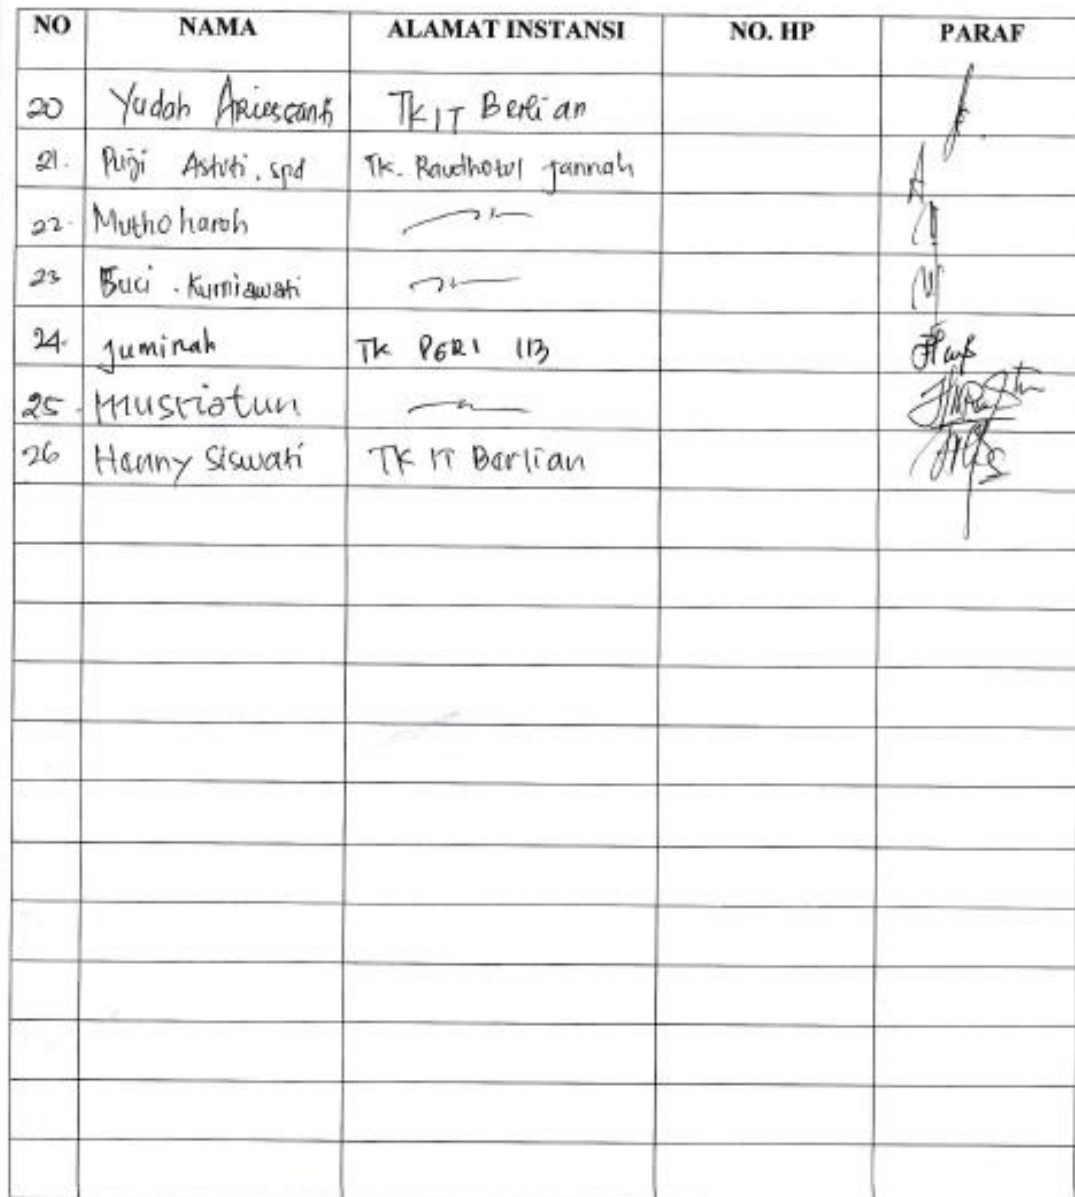 NO NAMA ALAMAT INSTANSI NO. HP PARAF
20 Yudah TK IT Berlian
21. Puji Astuti, spd TK. Raudhotul Jannah
22. Muthoharoh
23 Kurniawati
24. Juminah TK PGRI 113
25. Musriatun
26 Hanny Siswati TK IT Berlian